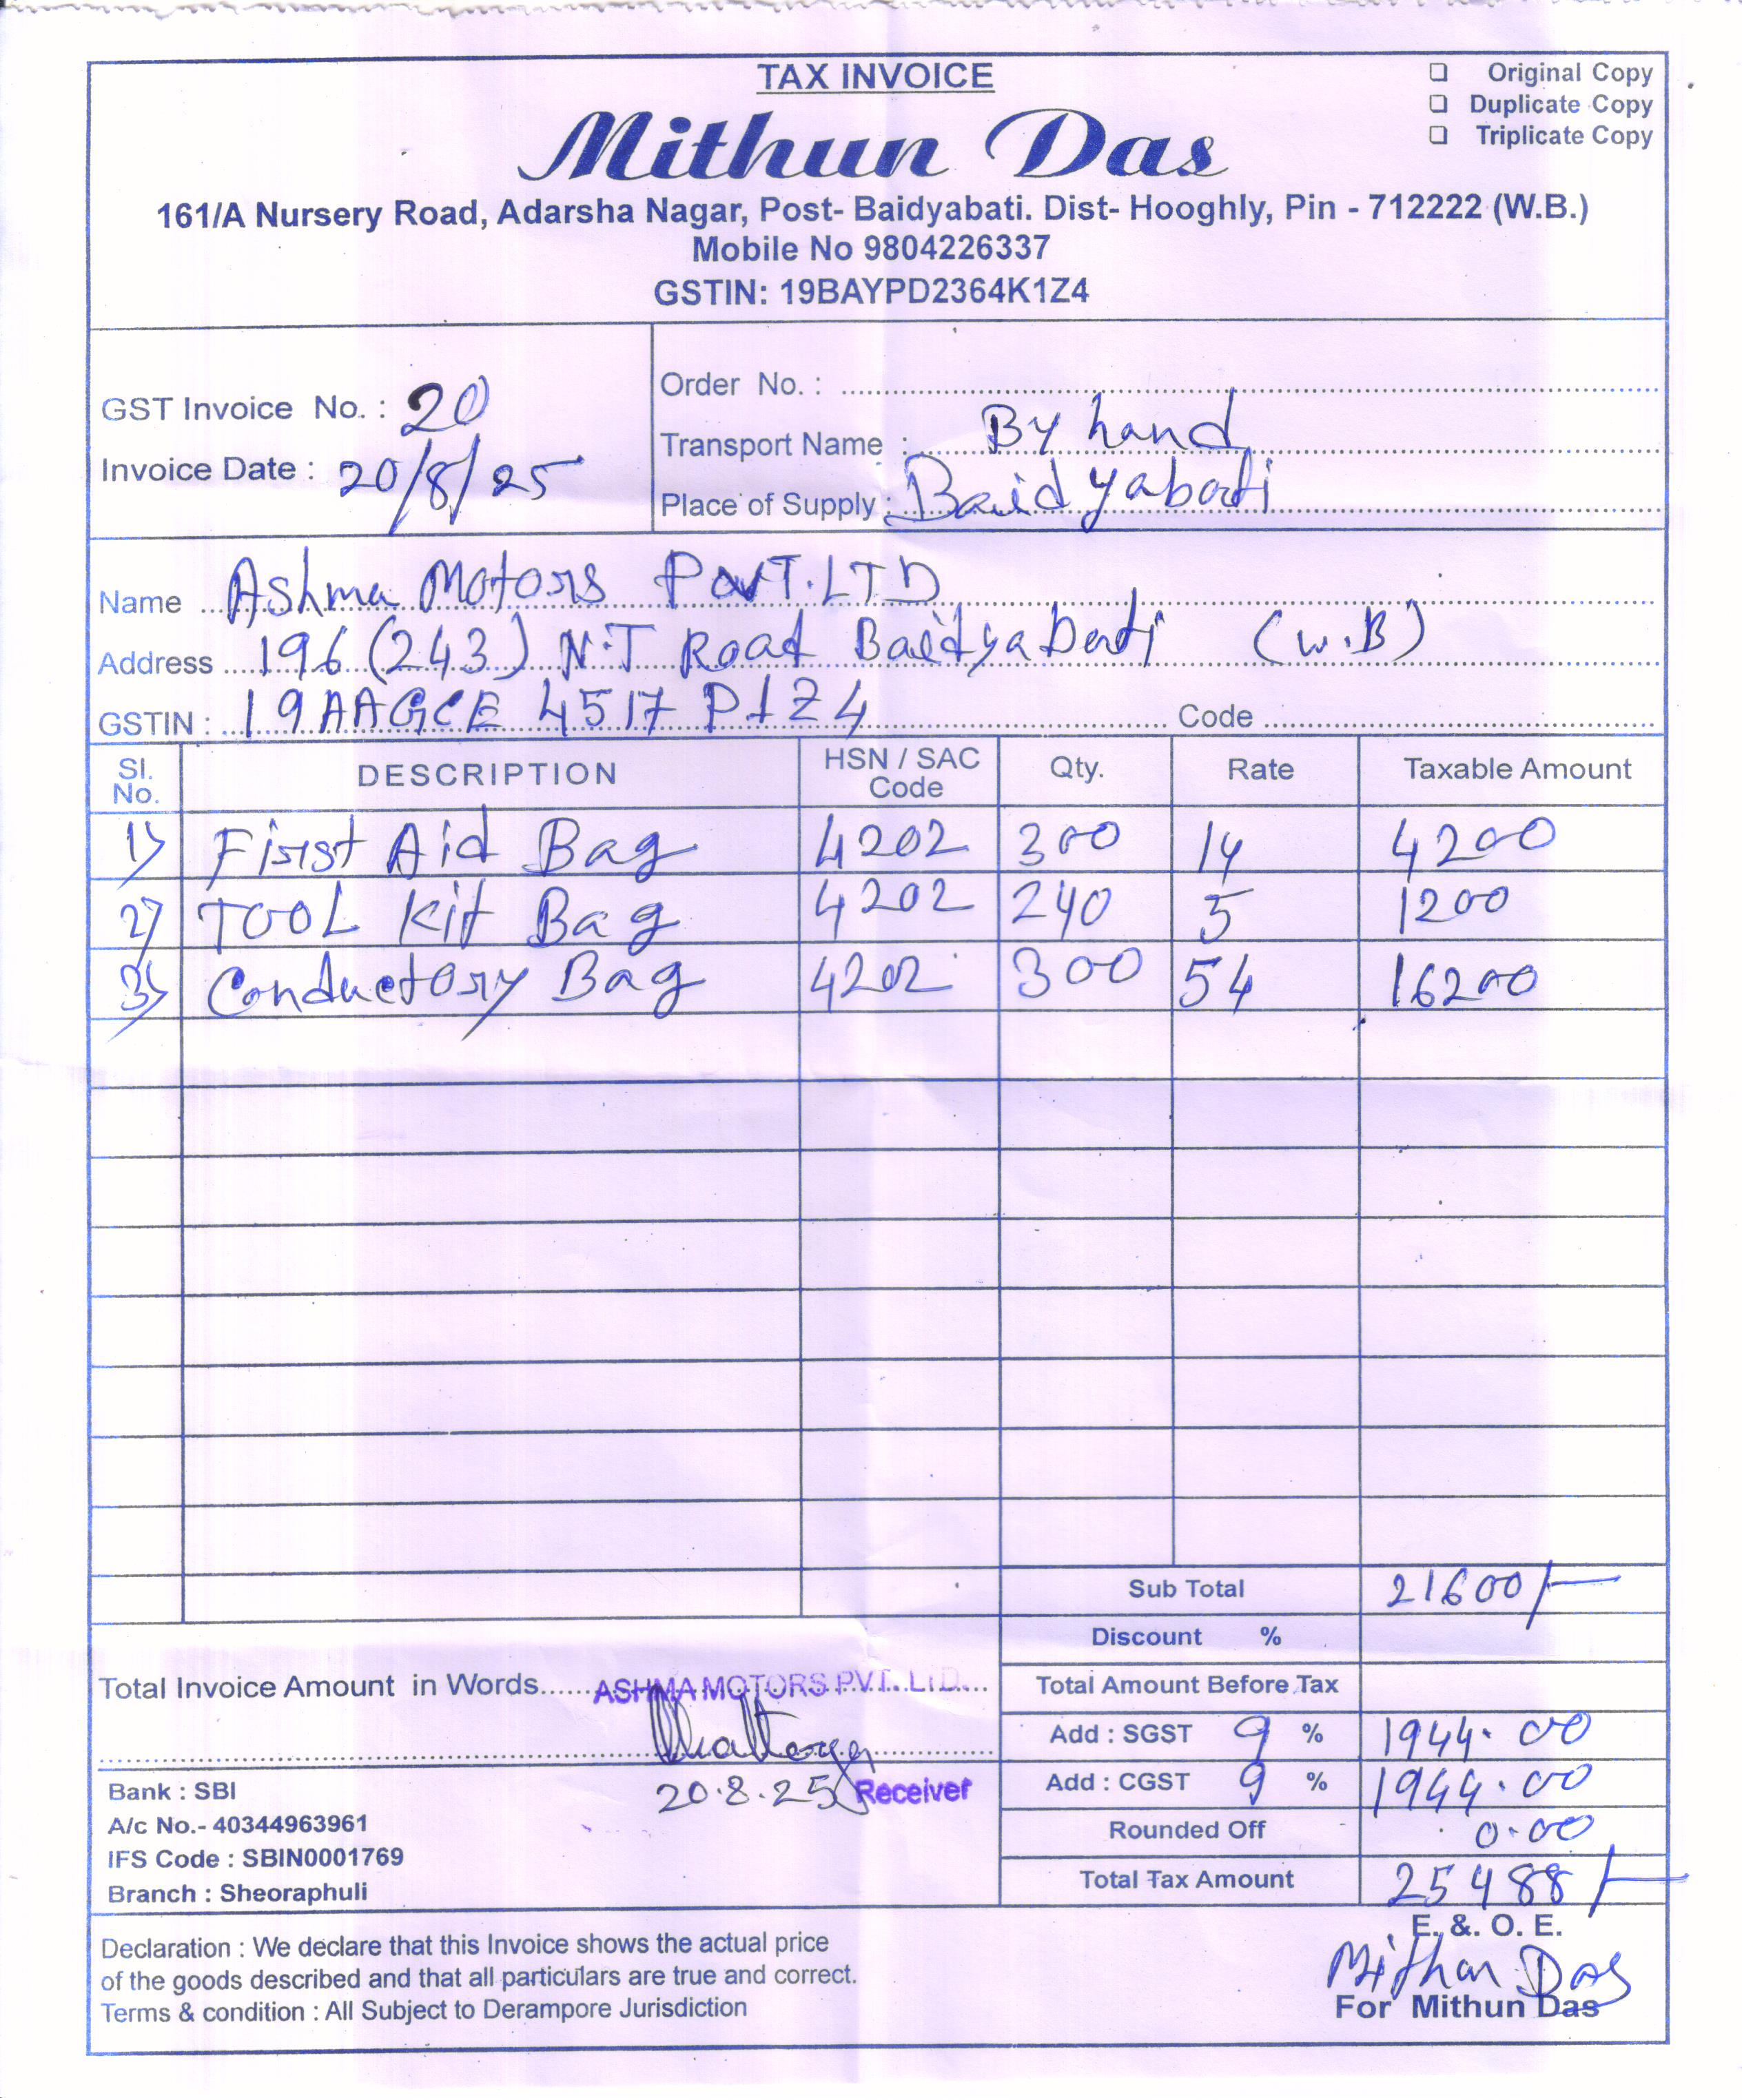 TAX INVOICE
Original Copy
Duplicate Copy
Triplicate Copy
Mithun Das
161/A Nursery Road, Adarsha Nagar, Post- Baidyabati. Dist- Hooghly, Pin - 712222 (W.B.)
Mobile No 9804226337
GSTIN: 19BAYPD2364K1Z4
GST Invoice No. : 20
Invoice Date : 20/8/25
Order No. :
Transport Name : By hand
Place of Supply : Baidyabati
Name Ashma Motors PvT. LTD
Address 196 (243) N.T Road Baidyabati (W.B)
GSTIN : 19AAGCE 4517 P1Z4 Code
Sl. No. DESCRIPTION HSN / SAC Code Qty. Rate Taxable Amount
1) First Aid Bag 4202 300 14 4200
2) TOOL Kit Bag 4202 240 5 1200
3) Conductory Bag 4202 300 54 16200
Sub Total 21600/-
Discount %
Total Invoice Amount in Words...... ASHMA MOTORS PVT. LTD.
Total Amount Before Tax
Add : SGST 9 % 1944.00
Add : CGST 9 % 1944.00
Rounded Off 0.00
Total Tax Amount 25488/-
20.8.25 Receiver
Bank : SBI
A/c No.- 40344963961
IFS Code : SBIN0001769
Branch : Sheoraphuli
Declaration : We declare that this Invoice shows the actual price
of the goods described and that all particulars are true and correct.
Terms & condition : All Subject to Derampore Jurisdiction
E. &. O. E.
Mithun Das
For Mithun Das